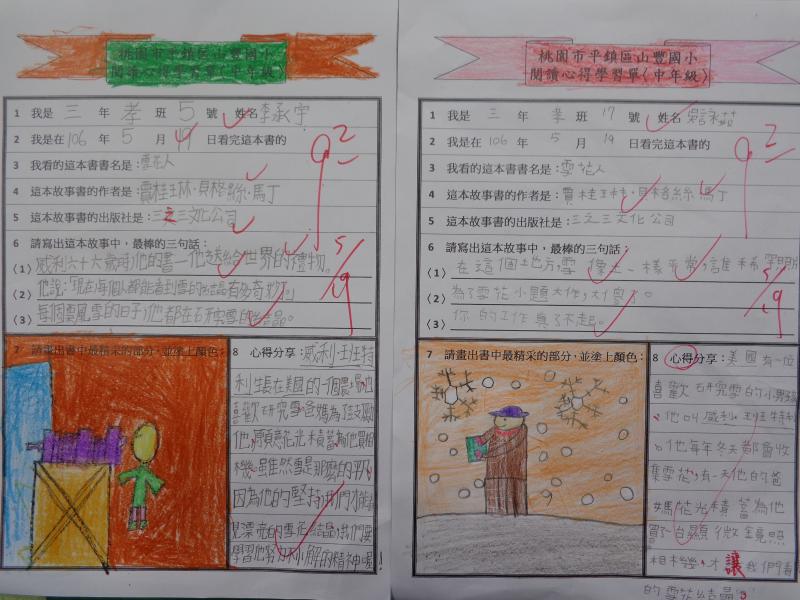 桃園市平鎮區山豐國小
閱讀心得學習單〈中年級〉
1 我是 三 年 孝 班 5 號 姓名 李承宇
2 我是在 106 年 5 月 19 日看完這本書的
3 我看的這本書書名是:雪花人
4 這本故事書的作者是:賈桂琳.貝格絲.馬丁
5 這本故事書的出版社是:三之三文化公司
6 請寫出這本故事中,最棒的三句話:
(1) 威利六十六歲時,他的書—他送給世界的禮物。
(2) 他說:「現在每個人都能看到雪的結晶有多奇妙!」
(3) 每個雪風雪的日子,他都在研究雪的結晶。
92
5/19
7 請畫出書中最精采的部分,並塗上顏色:
8 心得分享:威利.班特
利生長在美國的一個農場,他
喜歡研究雪,爸媽為了支
他,願意花光積蓄為他買相
機。雖然雪是那麼的平凡
因為他的堅持,我們才能
見漂亮的雪花結晶,我們要
學習他努力不懈的精神喔!
桃園市平鎮區山豐國小
閱讀心得學習單〈中年級〉
1 我是 三 年 孝 班 17 號 姓名
2 我是在 106 年 5 月 19 日看完這本書的
3 我看的這本書書名是:雪花人
4 這本故事書的作者是:賈桂琳.貝格絲.馬丁
5 這本故事書的出版社是:三之三文化公司
6 請寫出這本故事中,最棒的三句話:
(1) 在這個地方,雪像土一樣平常,誰稀罕
(2) 為了雪花小題大作,太傻了。
(3) 你的工作真了不起。
92
5/19
7 請畫出書中最精采的部分,並塗上顏色:
8 心得分享:美國有一位
喜歡研究雪的小男孩
,他叫威利.班特利
。他每年冬天都會收
集雪花,有一天他的爸
媽花光積蓄為他
買了台顯微鏡照
相機,才讓我們看
的雪花結晶。